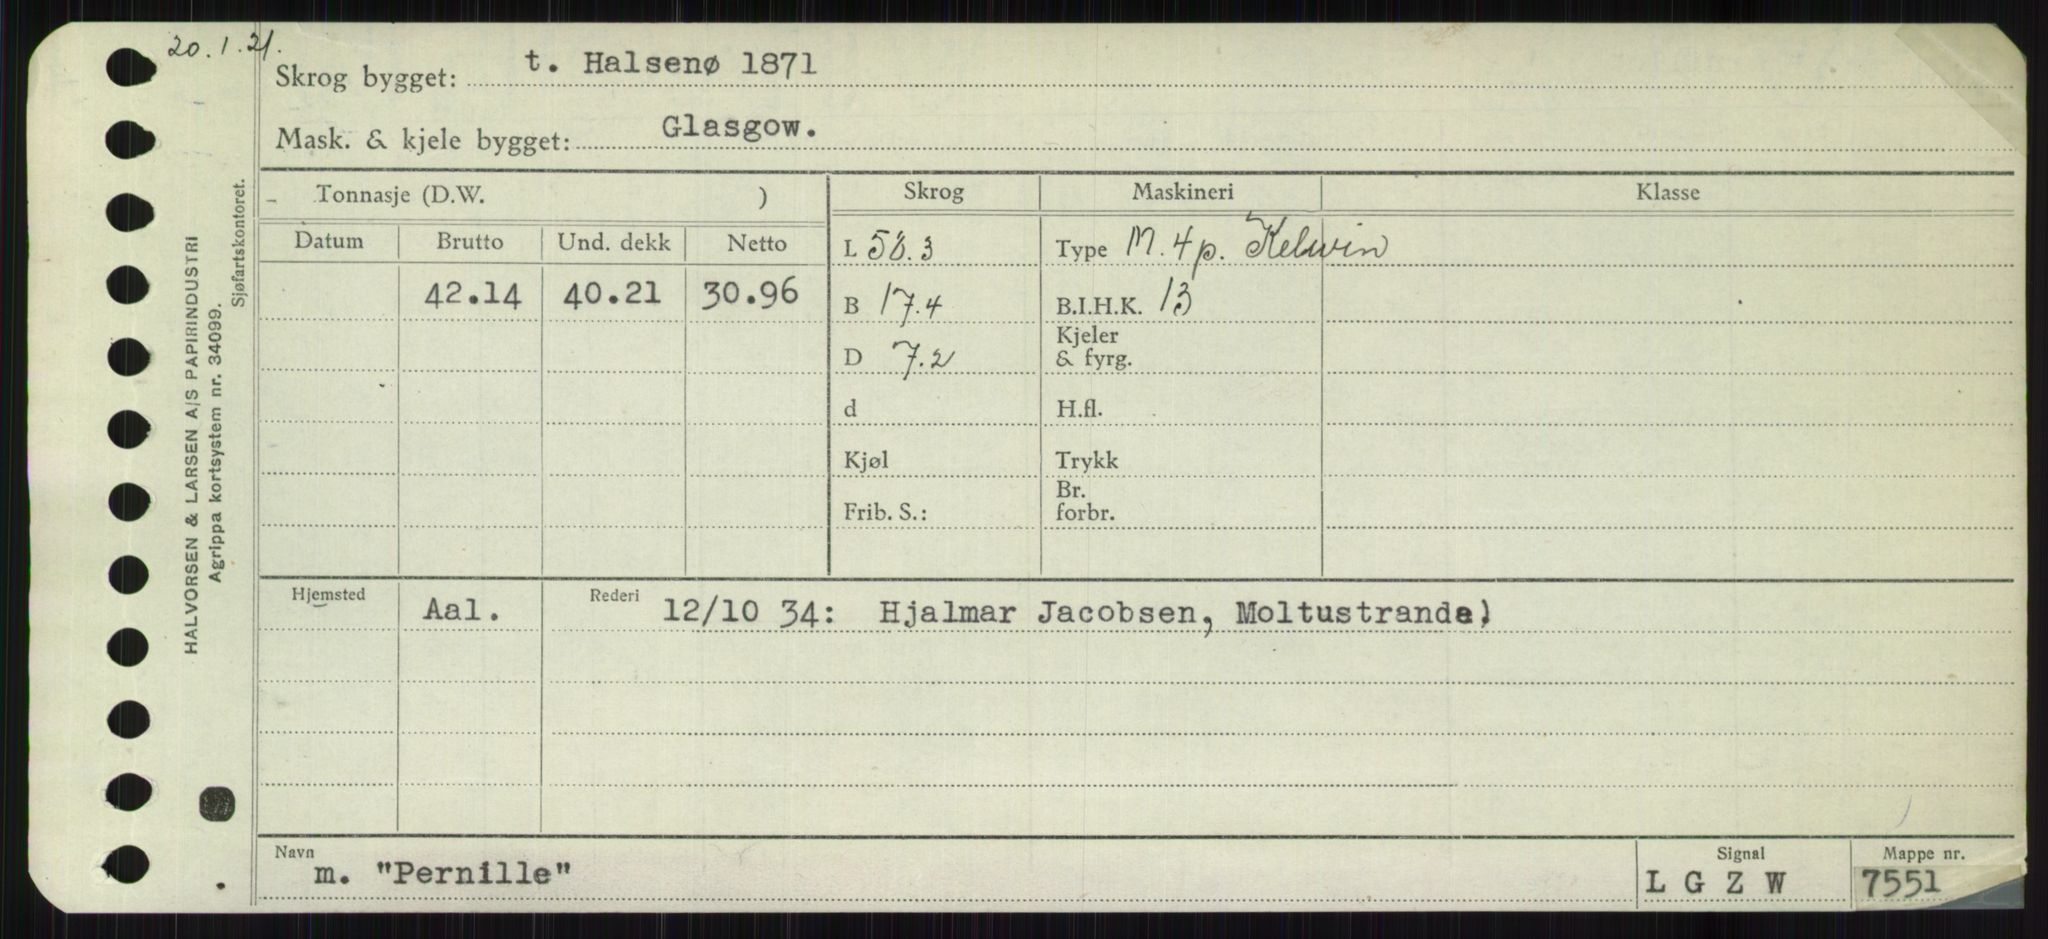 20.1.21.
Skrog bygget: t. Halsenø 1871
Mask. & kjele bygget: Glasgow.
Tonnasje (D.W. ) Skrog Maskineri Klasse
Datum Brutto Und. dekk Netto L 58.3 Type M. 4p. Kelvin
42.14 40.21 30.96 B 17.4 B.I.H.K. 13
D 7.2 Kjeler & fyrg.
d H.fl.
Kjøl Trykk
Frib. S.: Br. forbr.
Hjemsted Aal. Rederi 12/10 34: Hjalmar Jacobsen, Moltustrand.)
Navn m. "Pernille" Signal L G Z W Mappe nr. 7551
HALVORSEN & LARSEN A/S PAPIRINDUSTRI
Agrippa kortsystem nr. 34099.
Sjøfartskontoret.